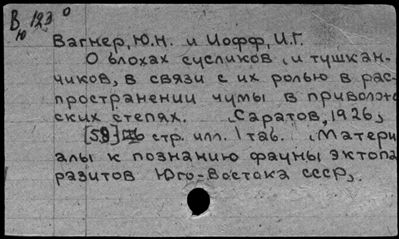 В 123 о
Ю
Вагнер, Ю.Н. и Иофф, И.Г.
О блохах сусликов и тушкан-
чиков, в связи с их ролью в рас-
пространении чумы в приволж
ских степях. Саратов, 1926,
стр. илл. 1 таб. Матери
алы к познанию фауны эктопа
разитов Юго-Востока СССР,